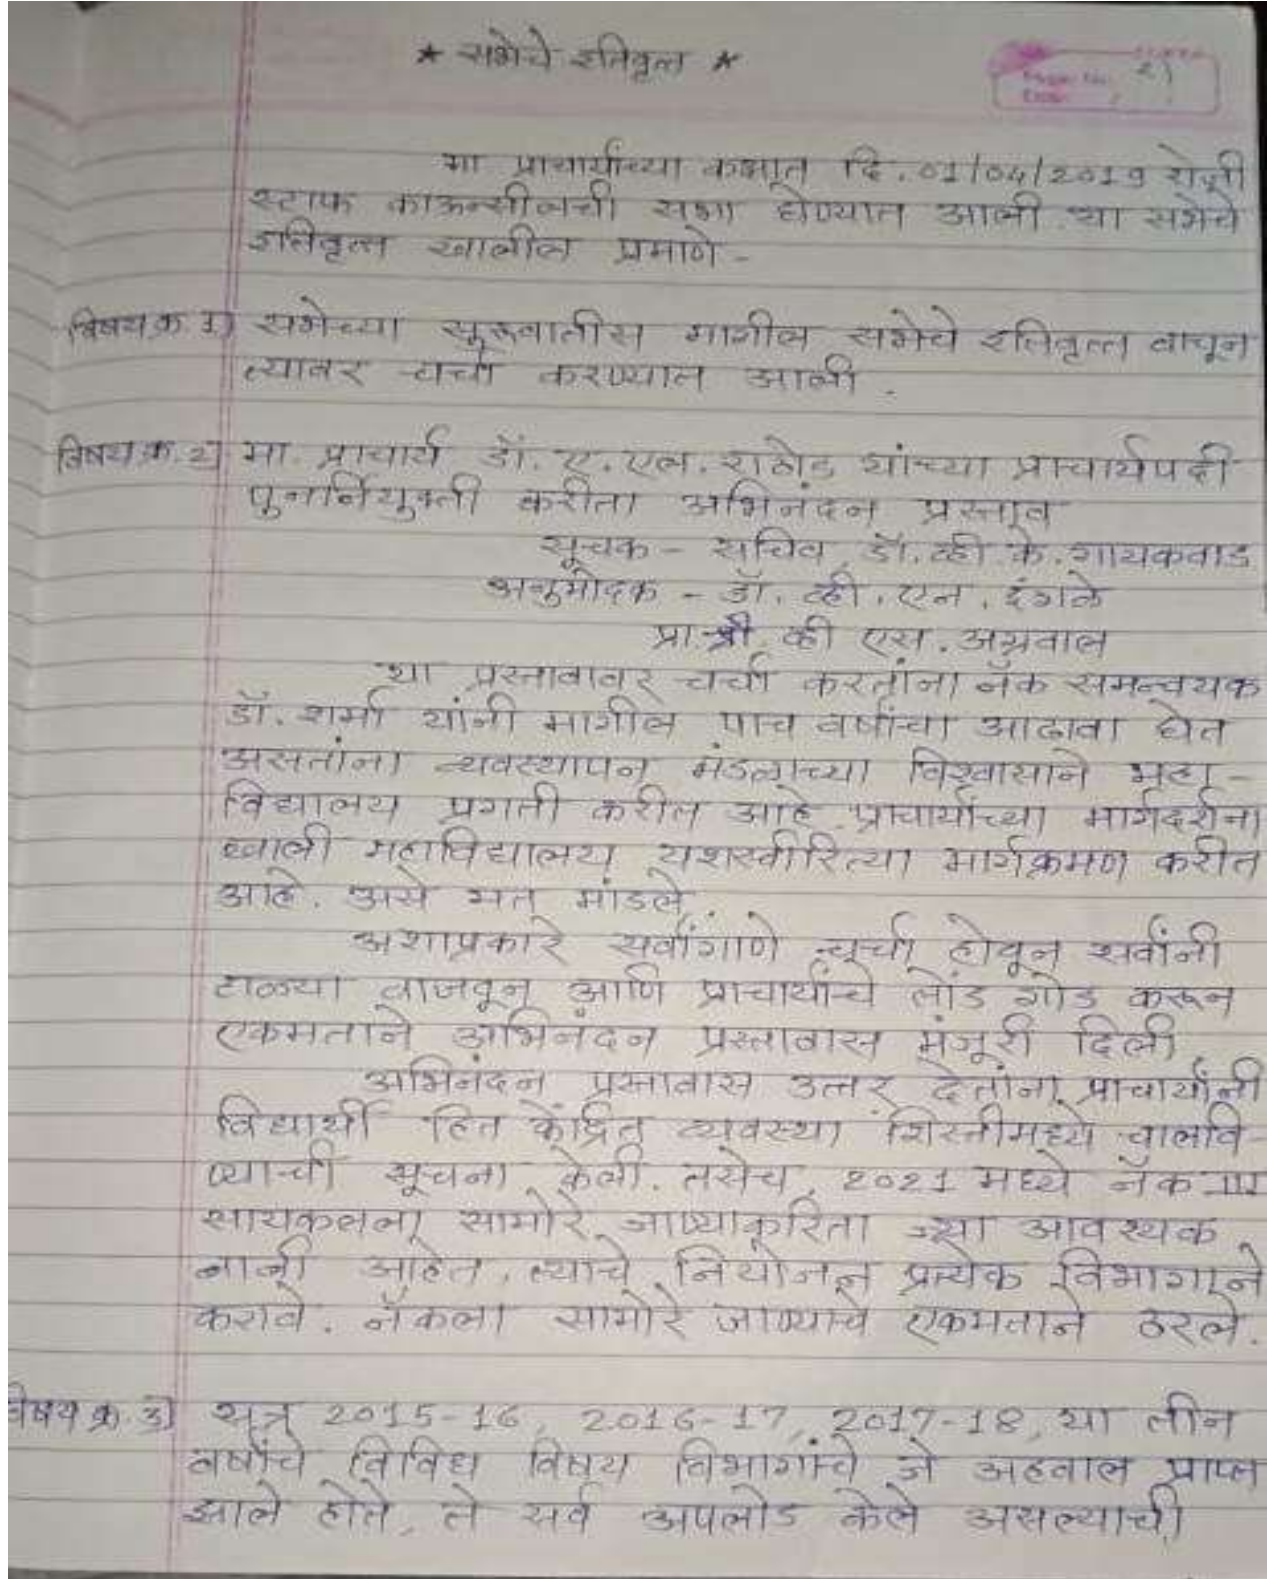 ★ सभेचे इतिवृत्त ★
Page No. 21
Date: / /
मा प्राचार्यांच्या कक्षात दि. 01/04/2019 रोजी
स्टाफ काऊन्सीलची सभा घेण्यात आली. या सभेचे
इतिवृत्त खालील प्रमाणे -
विषय क्र. 1) सभेच्या सुरूवातीस मागील सभेचे इतिवृत्त वाचून
त्यावर चर्चा करण्यात आली.
विषय क्र. 2) मा. प्राचार्य डॉ. ए. एल. राठोड यांच्या प्राचार्यपदी
पुनर्नियुक्ती करीता अभिनंदन प्रस्ताव
सूचक - सचिव, डॉ. व्ही. के. गायकवाड
अनुमोदक - डॉ. व्ही. एन. इंगळे
प्रा. श्री. व्ही एस. अग्रवाल
या प्रस्तावावर चर्चा करतांना नॅक समन्वयक
डॉ. शर्मा यांनी मागील पाच वर्षांचा आढावा घेत
असतांना व्यवस्थापन मंडळाच्या विश्वासाने महा-
विद्यालय प्रगती करीत आहे. प्राचार्यांच्या मार्गदर्शना
खाली महाविद्यालय यशस्वीरित्या मार्गक्रमण करीत
आहे. असे मत मांडले.
अशाप्रकारे सर्वांगाणे चर्चा होवून सर्वांनी
टाळ्या वाजवून आणि प्राचार्यांचे तोंड गोड करून
एकमताने अभिनंदन प्रस्तावास मंजूरी दिली.
अभिनंदन प्रस्तावास उत्तर देतांना प्राचार्यांनी
विद्यार्थी हित केंद्रित व्यवस्था शिस्तीमध्ये चालवि-
ण्याची सूचना केली. तसेच, 2021 मध्ये नॅक III
सायकलला सामोरे जाण्याकरिता ज्या आवश्यक
बाबी आहेत, त्याचे नियोजन प्रत्येक विभागाने
करावे. नॅकला सामोरे जाण्याचे एकमताने ठरले.
विषय क्र. 3) सत्र 2015-16, 2016-17, 2017-18, या तीन
वर्षांचे विविध विषय विभागांचे जे अहवाल प्राप्त
झाले होते, ते सर्व अपलोड केले असल्याची